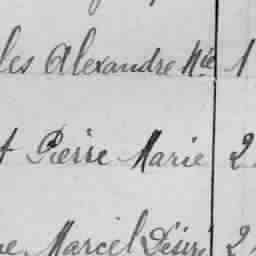 les Alexandre Mie 1
t Pierre Marie 2
ne Marcel Désiré 2